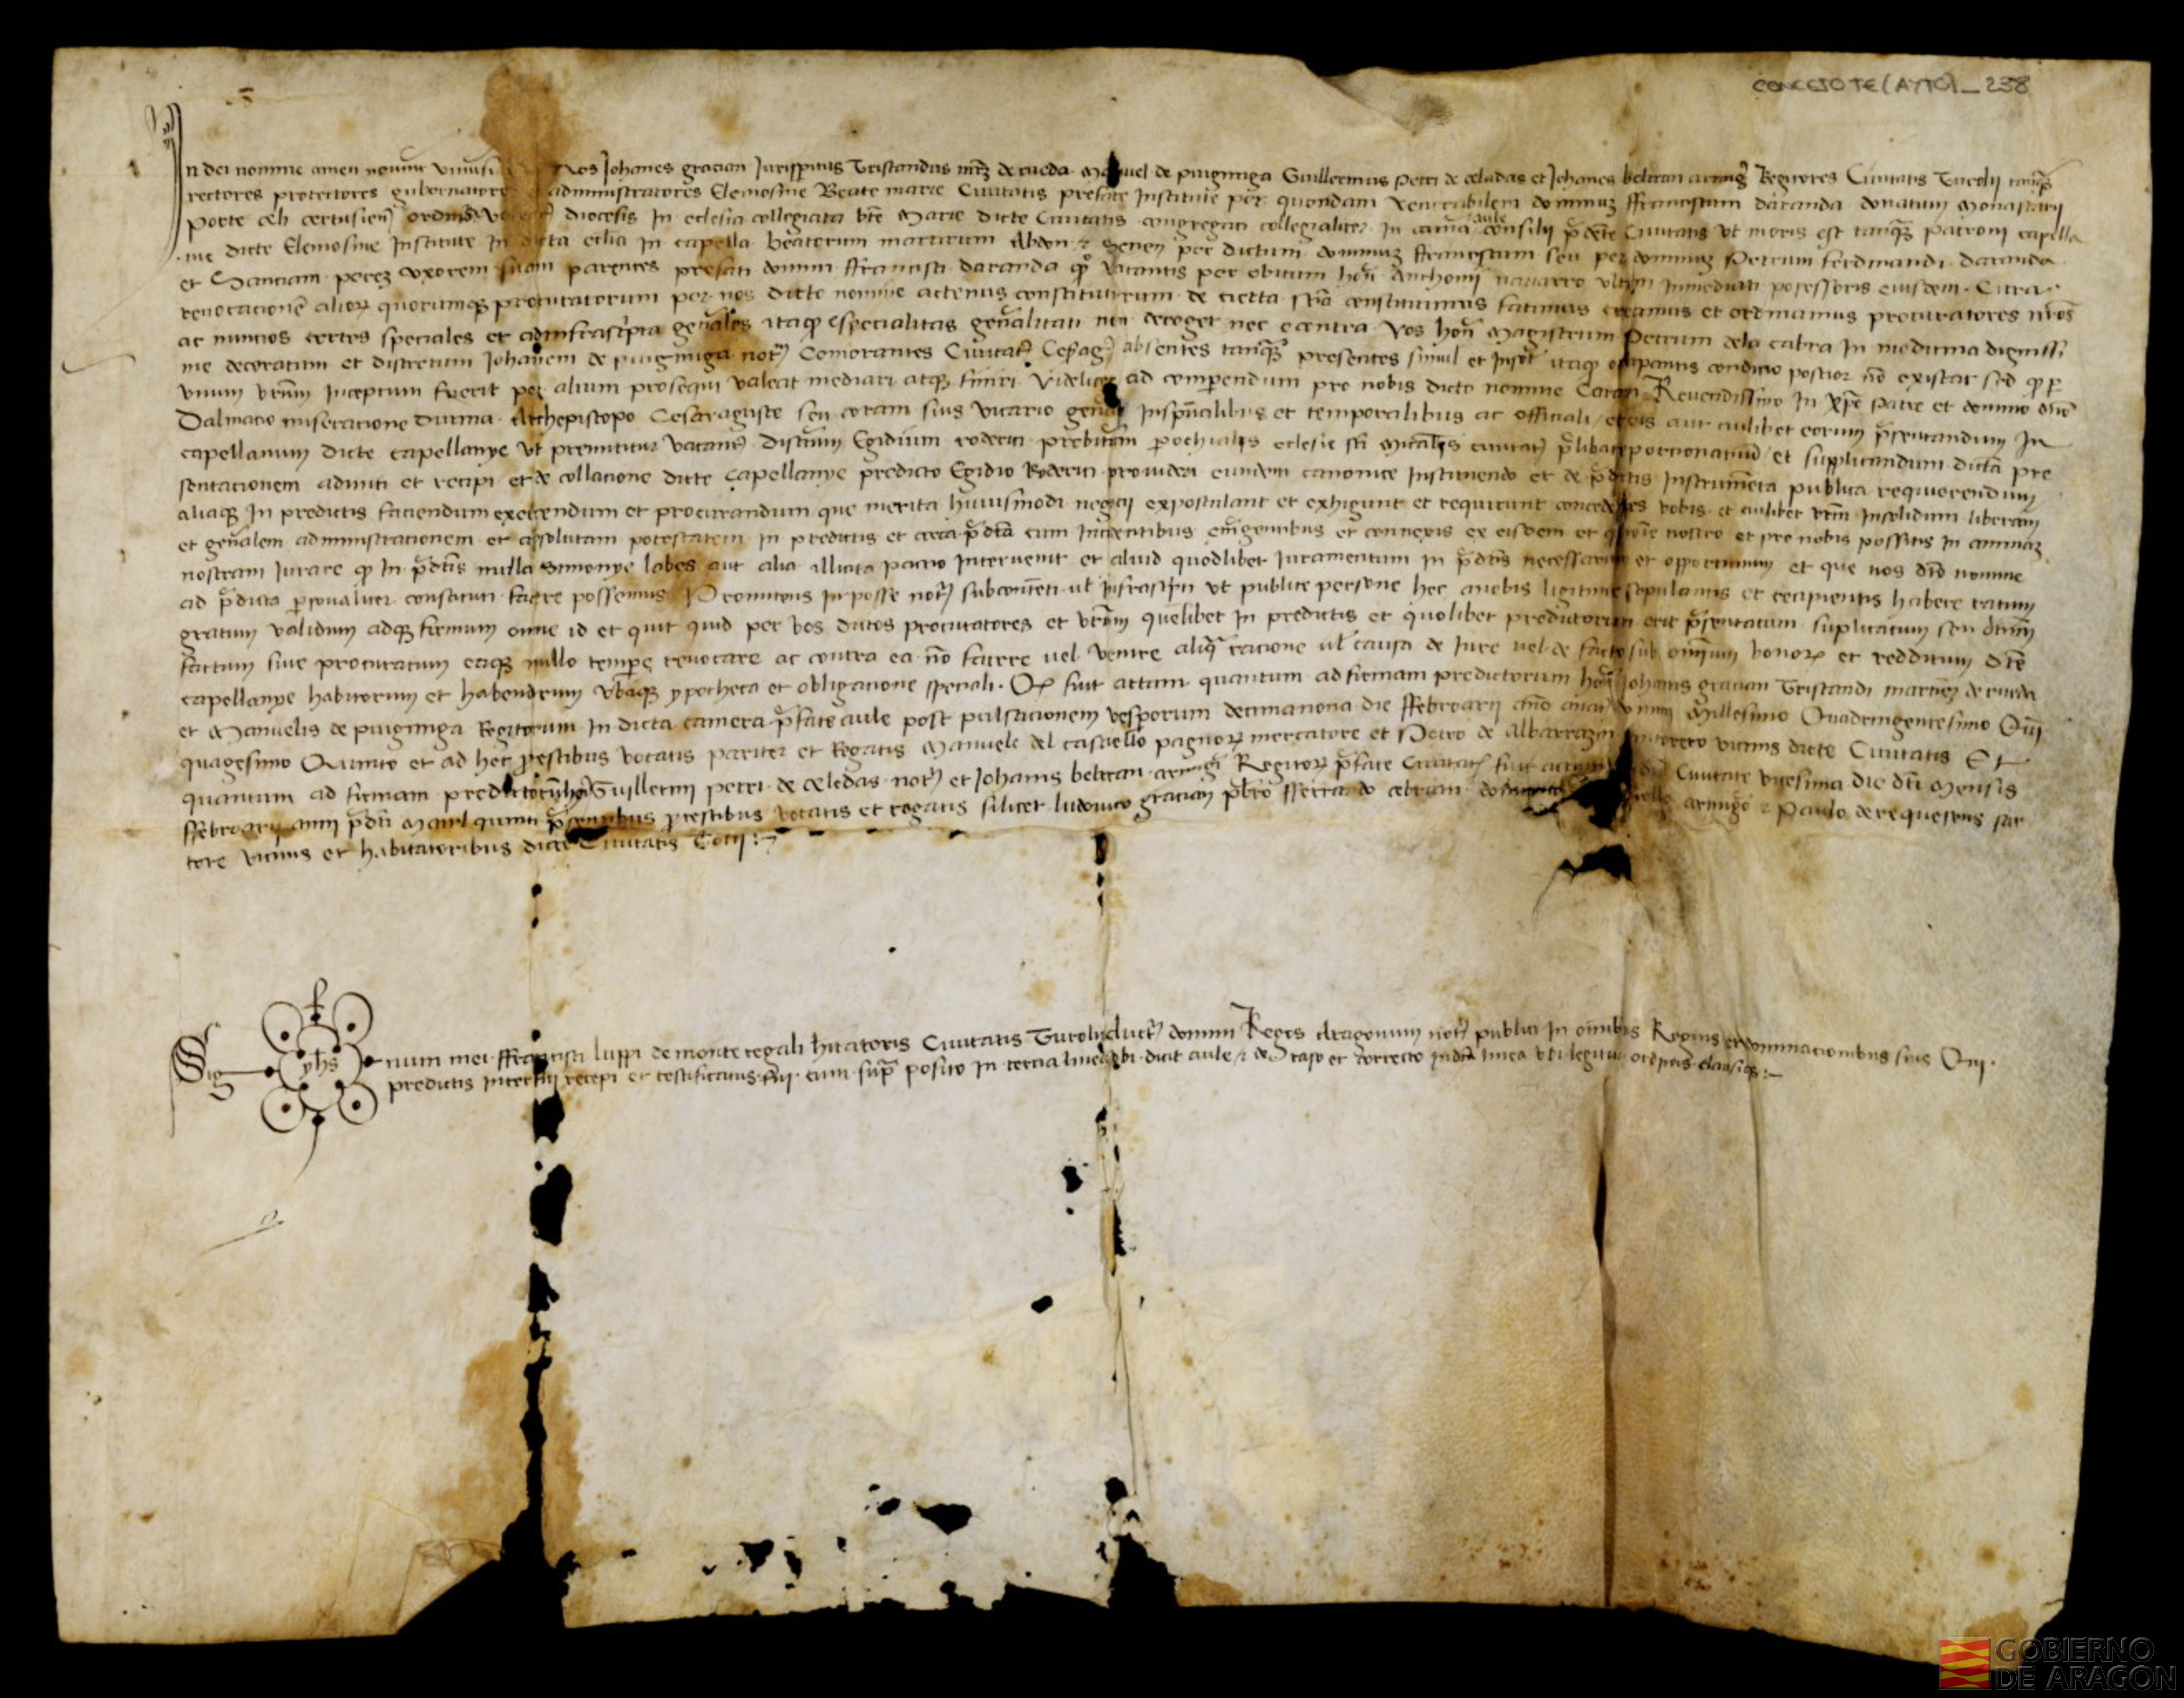 CONCEJO TE (AYTO)_238
In dei nomine amen noverint universi Nos Johanes gracian Jurisperitus Tristandus mrz de rueda Manuel de puigmiga Guillermus Petri de celadas et Johanes beltran armigr Regitores Civitatis Turolii tanqz
rectores protectores gubernatores administratores Elemosine Beate marie Civitatis prefate Institute per quondam venerabilem dominuz ffranciscum daranda donatum Monasterii
Porte celi cartusien ordinis diocesis In eclesia collegiata bte Marie dicte Civitatis congregati collegialiter In camera aule consilii pdcte Civitatis ut moris est tanqz patroni capella
nie dicte Elemosine Institute In dicta eclia In capella beatorum martirum Abdon et Senen per dictum dominuz ffranciscum seu per dominuz Petrum ferdinandi daranda
et Sanciam perez uxorem suam parentes prefati domini ffrancisci daranda qo vacantis per obitum hon Anthonii navarro ultimi Inmediati possessoris eiusdem Citra
revocacione alior quorumqz procuratorum per nos dicto nomine actenus constitutorum de certa scia constituimus facimus creamus et ordinamus procuratores nros
ac nuncios certos speciales et adinfrascripta generales itaqz specialitas generalitati non deroget nec econtra Vos hon Magistrum Petrum dela cabra In medicina dignissi
me decoratum et discretum Johanem de puigmiga not Comorantes Civitat Cesarag absentes tanqz presentes simul et Insol itaqz ocupantis condicio pocior no existat sed qz per
unum vrum Inceptum fuerit per alium prosequi valeat mediari atqz finiri Videlicet ad comperendum pro nobis dicto nomine Coram Reverendissimo In xpo Patre et domino dno
Dalmacio miseracione divina Archiepiscopo Cesarauguste seu coram suis vicario generali Inspualibus et temporalibus ac officiali et eis aut cuilibet eorum presentandum In
capellanum dicte capellanye ut premititur vacantis discretum Egidium roderici prebiterum parochialis eclesie sti Micaelis civitat prelibate porcionarium et supplicandum dictam pre
sentacionem admiti et recipi et de collacione dicte capellanye predicto Egidio Roderici provideri eundem canonice Instituendo et de pdictis Instrumenta publica requirendum
aliaqz In predictis faciendum exercendum et procurandum que merita huiusmodi negocii expostulant et exhigunt et requirunt concedentes vobis et cuilibet vrm Insolidum liberam
et generalem administracionem et absolutam potestatem In predictis et circa pdcta cum Incidentibus emergentibus et connexis ex eisdem et quoie nostro et pro nobis possitis In animaz
nostram Jurare qz In pdctis nulla simonye labes aut alia illicita pactio Intervenit et aliud quodlibet Juramentum In pdctis necessarium et opportunum et que nos dicto nomine
ad pdicta personaliter constituti facere possemus Promitens Inposse not subcontenti ut Infrascripti ut publice persone hec anobis ligitime stipulantis et recipientis habere ratum
gratum validum adqz firmum omne id et quit quid per vos dictos procuratores et vrm quemlibet In predictis et quolibet predictorum erit presentatum suplicatum seu dictum
factum sive procuratum eaqz nullo tempore revocare ac contra ea no facere vel venire aliqua racione vel causa de Jure vel de facto sub omnium bonorz et reddituum dicte
capellanye habitorum et habendorum ubiqz ypotheca et obligacione speciali Qd fuit actum quantum ad firmam predictorum hon Johanis gracian Tristandi martinez de rueda
et Manuelis de puigmiga Regitorum In dicta camera pfate aule post pulsacionem vesporum decimanona die ffebroarii anno anat domini Millesimo Quadringentesimo Quin
quagesimo Quinto et ad hec pro testibus vocatis pariter et Rogatis Manuele del castiello pagnorz mercatore et Petro de Albarrazin vicinis dicte Civitatis Et
quantum ad firmam predictorum hon Guillermi petri de celadas not et Johanis beltran armigi Regitorz pfate Civitat fuit actum In dicta Civitate vicesima die dicti Mensis
ffebroarii anni pdcti Mcccclquinti presentibus pro testibus vocatis et rogatis silicet ludovico gracian pbro fferrando cebrian armigo et Paulo de requesens sar
tore vicinis et habitatoribus dicte Civitatis Tirolii :~
Sig yhs num mei ffrancisci luppi de monte regali hitatoris Civitatis Turolii auct domini Regis Aragonum not publici In omnibus Regnis et dominacionibus suis Qui
predictis Interfui recepi et testificatus fui cum supra posito In tercia linea ubi dicit aule et de Raso et correcto In dicta linea ubi legitur ordinis clausi :~
GOBIERNO
DE ARAGON